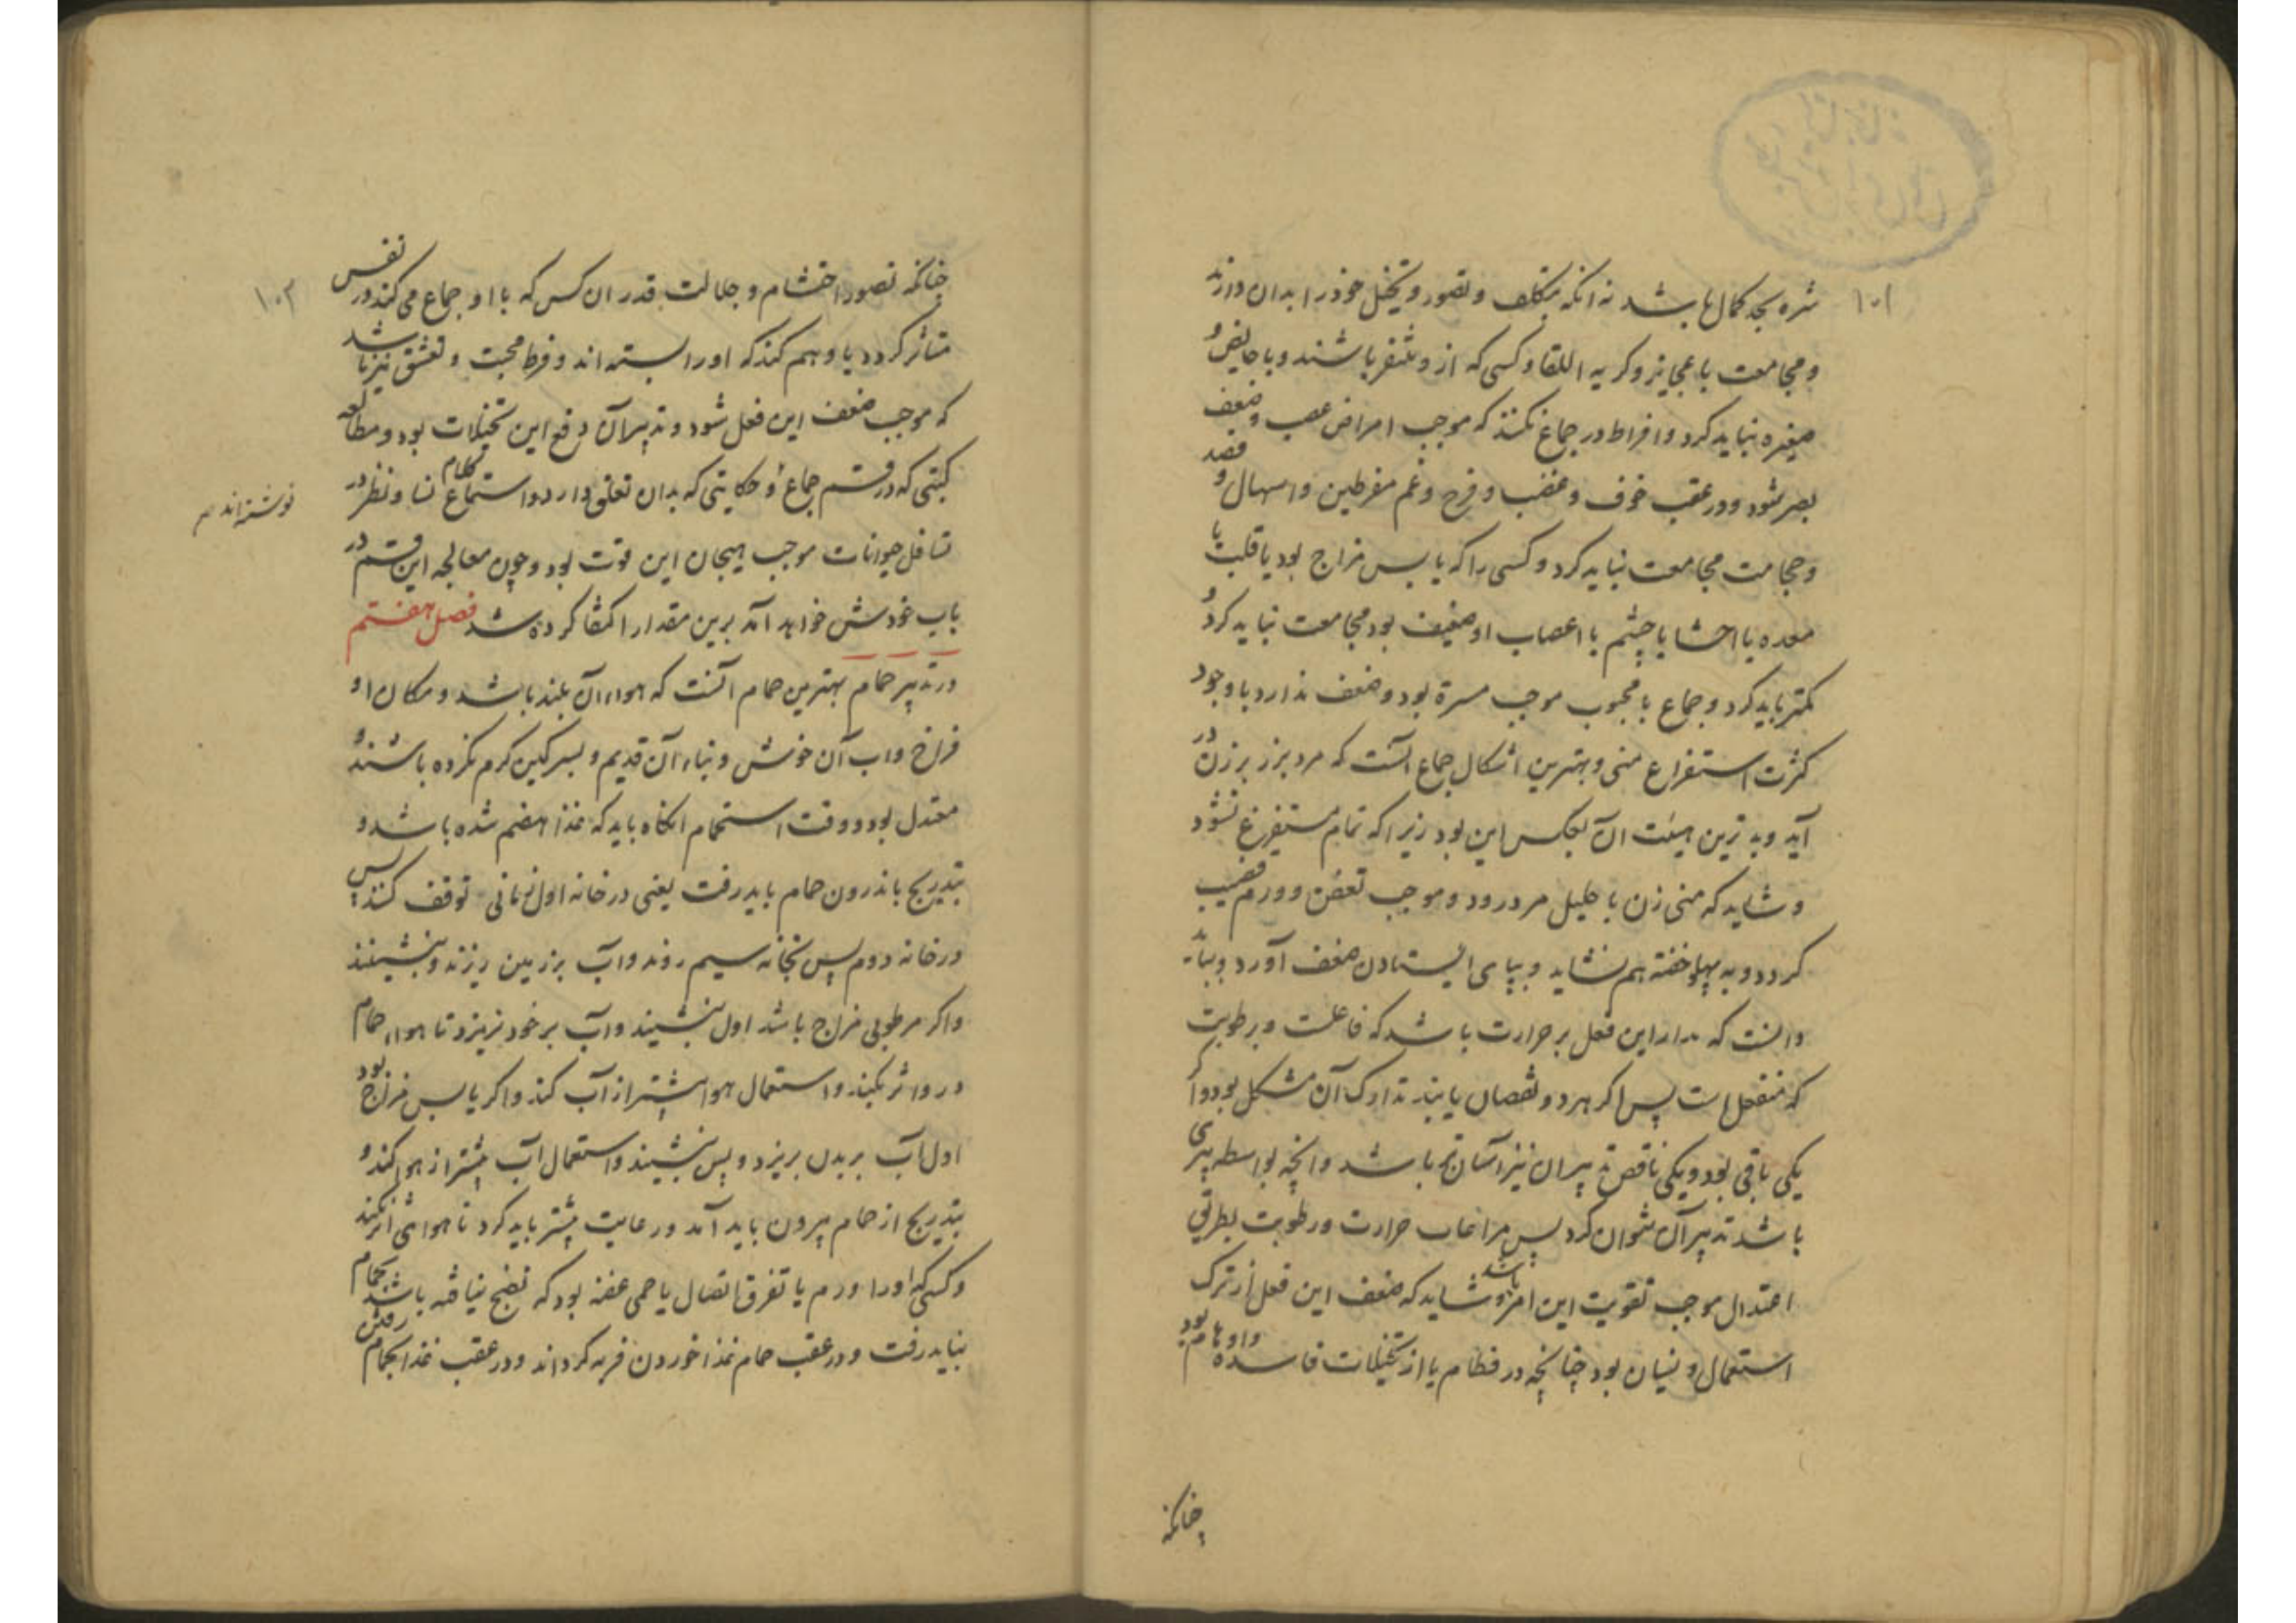 ۱۰۱
شره بحد کمال باشد نه انکه بتکلف و تصور و تخیل خود را بدان دارند
و مجامعت با عجایز و کریه اللقا و کسی که ازو متنفر باشند و با حایض و
صغیره نباید کرد و افراط در جماع نکنند که موجب امراض عصب و ضعف
بصر شود و در عقب خوف و غضب و فرح و غم مفرطین و اسهال و فصد
و حجامت مجامعت نباید کرد و کسی را که یابس مزاج بود یا قلب یا
معده یا احشا یا چشم یا اعصاب او ضعیف بود مجامعت نباید کرد و
کمتر باید کرد و جماع با محبوب موجب مسرة بود و ضعف ندارد با وجود
کثرت استفراغ منی و بهترین اشکال جماع آنست که مرد بزر بر زن در
آید و بدترین هیئت ان بعکس این بود زیرا که تمام مستفرغ نشود
و شاید که منی زن باحلیل مرد رود و موجب تعفن و ورم قضیب
کردد و به پهلو خفته هم نشاید و بپای ایستادن ضعف آورد و بباید
دانست که مدار این فعل بر حرارت باشد که فاعلست و رطوبت
که منفعل است پس اکر هر دو نقصان یابند تدارک آن مشکل بود و اکر
یکی باقی بود و یکی ناقص تدبیر ان نیز آسان تر باشد و انچه بواسطه پیری
باشد تدبیر آن نتوان کرد پس مراعات حرارت و رطوبت بطریق
اعتدال موجب تقویت این امر باشد و شاید که ضعف این فعل از ترک
استعمال و نسیان بود چنانچه در فطام یا از تخیلات فاسده و اوهام بود
چنانکه
۱۰۲
چنانکه تصور احتشام و جلالت قدر ان کس که با او جماع می کند در نفس
متاثر کردد یا وهم کند که او را بسته اند و فرط محبت و تعشق نیز باشد
که موجب ضعف این فعل شود و تدبیر آن دفع این تخیلات بود و مطالعه
کتبی که در قسم جماع و حکایتی که بدان تعلق دارد و استماع کلام نسا و نظر در
نوشته اند
تسافل حیوانات موجب هیجان این قوت بود و چون معالجه این قسم در
باب خودش خواهد آمد برین مقدار اکتفا کرده شد فصل هفتم
در تدبیر حمام بهترین حمام آنست که هواء آن بلند باشد و مکان او
فراخ و اب آن خوش و بناء آن قدیم و بسرکین کرم نکرده باشند و
معتدل بود و وقت استحمام انکاه باید که غذا هضم شده باشد و
بتدریج باندرون حمام باید رفت یعنی در خانه اول زمانی توقف کنند پس
در خانه دوم پس بخانه سیم روند و آب بر زمین ریزند و بنشینند
و اکر مرطوبی مزاج باشد اول بنشیند و آب بر خود نریزد تا هواء حمام
در و اثر بکند و استعمال هوا بیشتر از آب کند و اکر یابس مزاج بود
اول آب بر بدن بریزد و پس بنشیند و استعمال آب بیشتر از هوا کند و
بتدریج از حمام بیرون باید آمد و رعایت بیشتر باید کرد تا هوائی اثر نکند
و کسی که او را ورم یا تفرق اتصال یا حمی عفنه بود که نضج نیافته باشد بحمام
نباید رفت و در عقب حمام غذا خوردن فربه کرداند و در عقب غذا بحمام رفتن